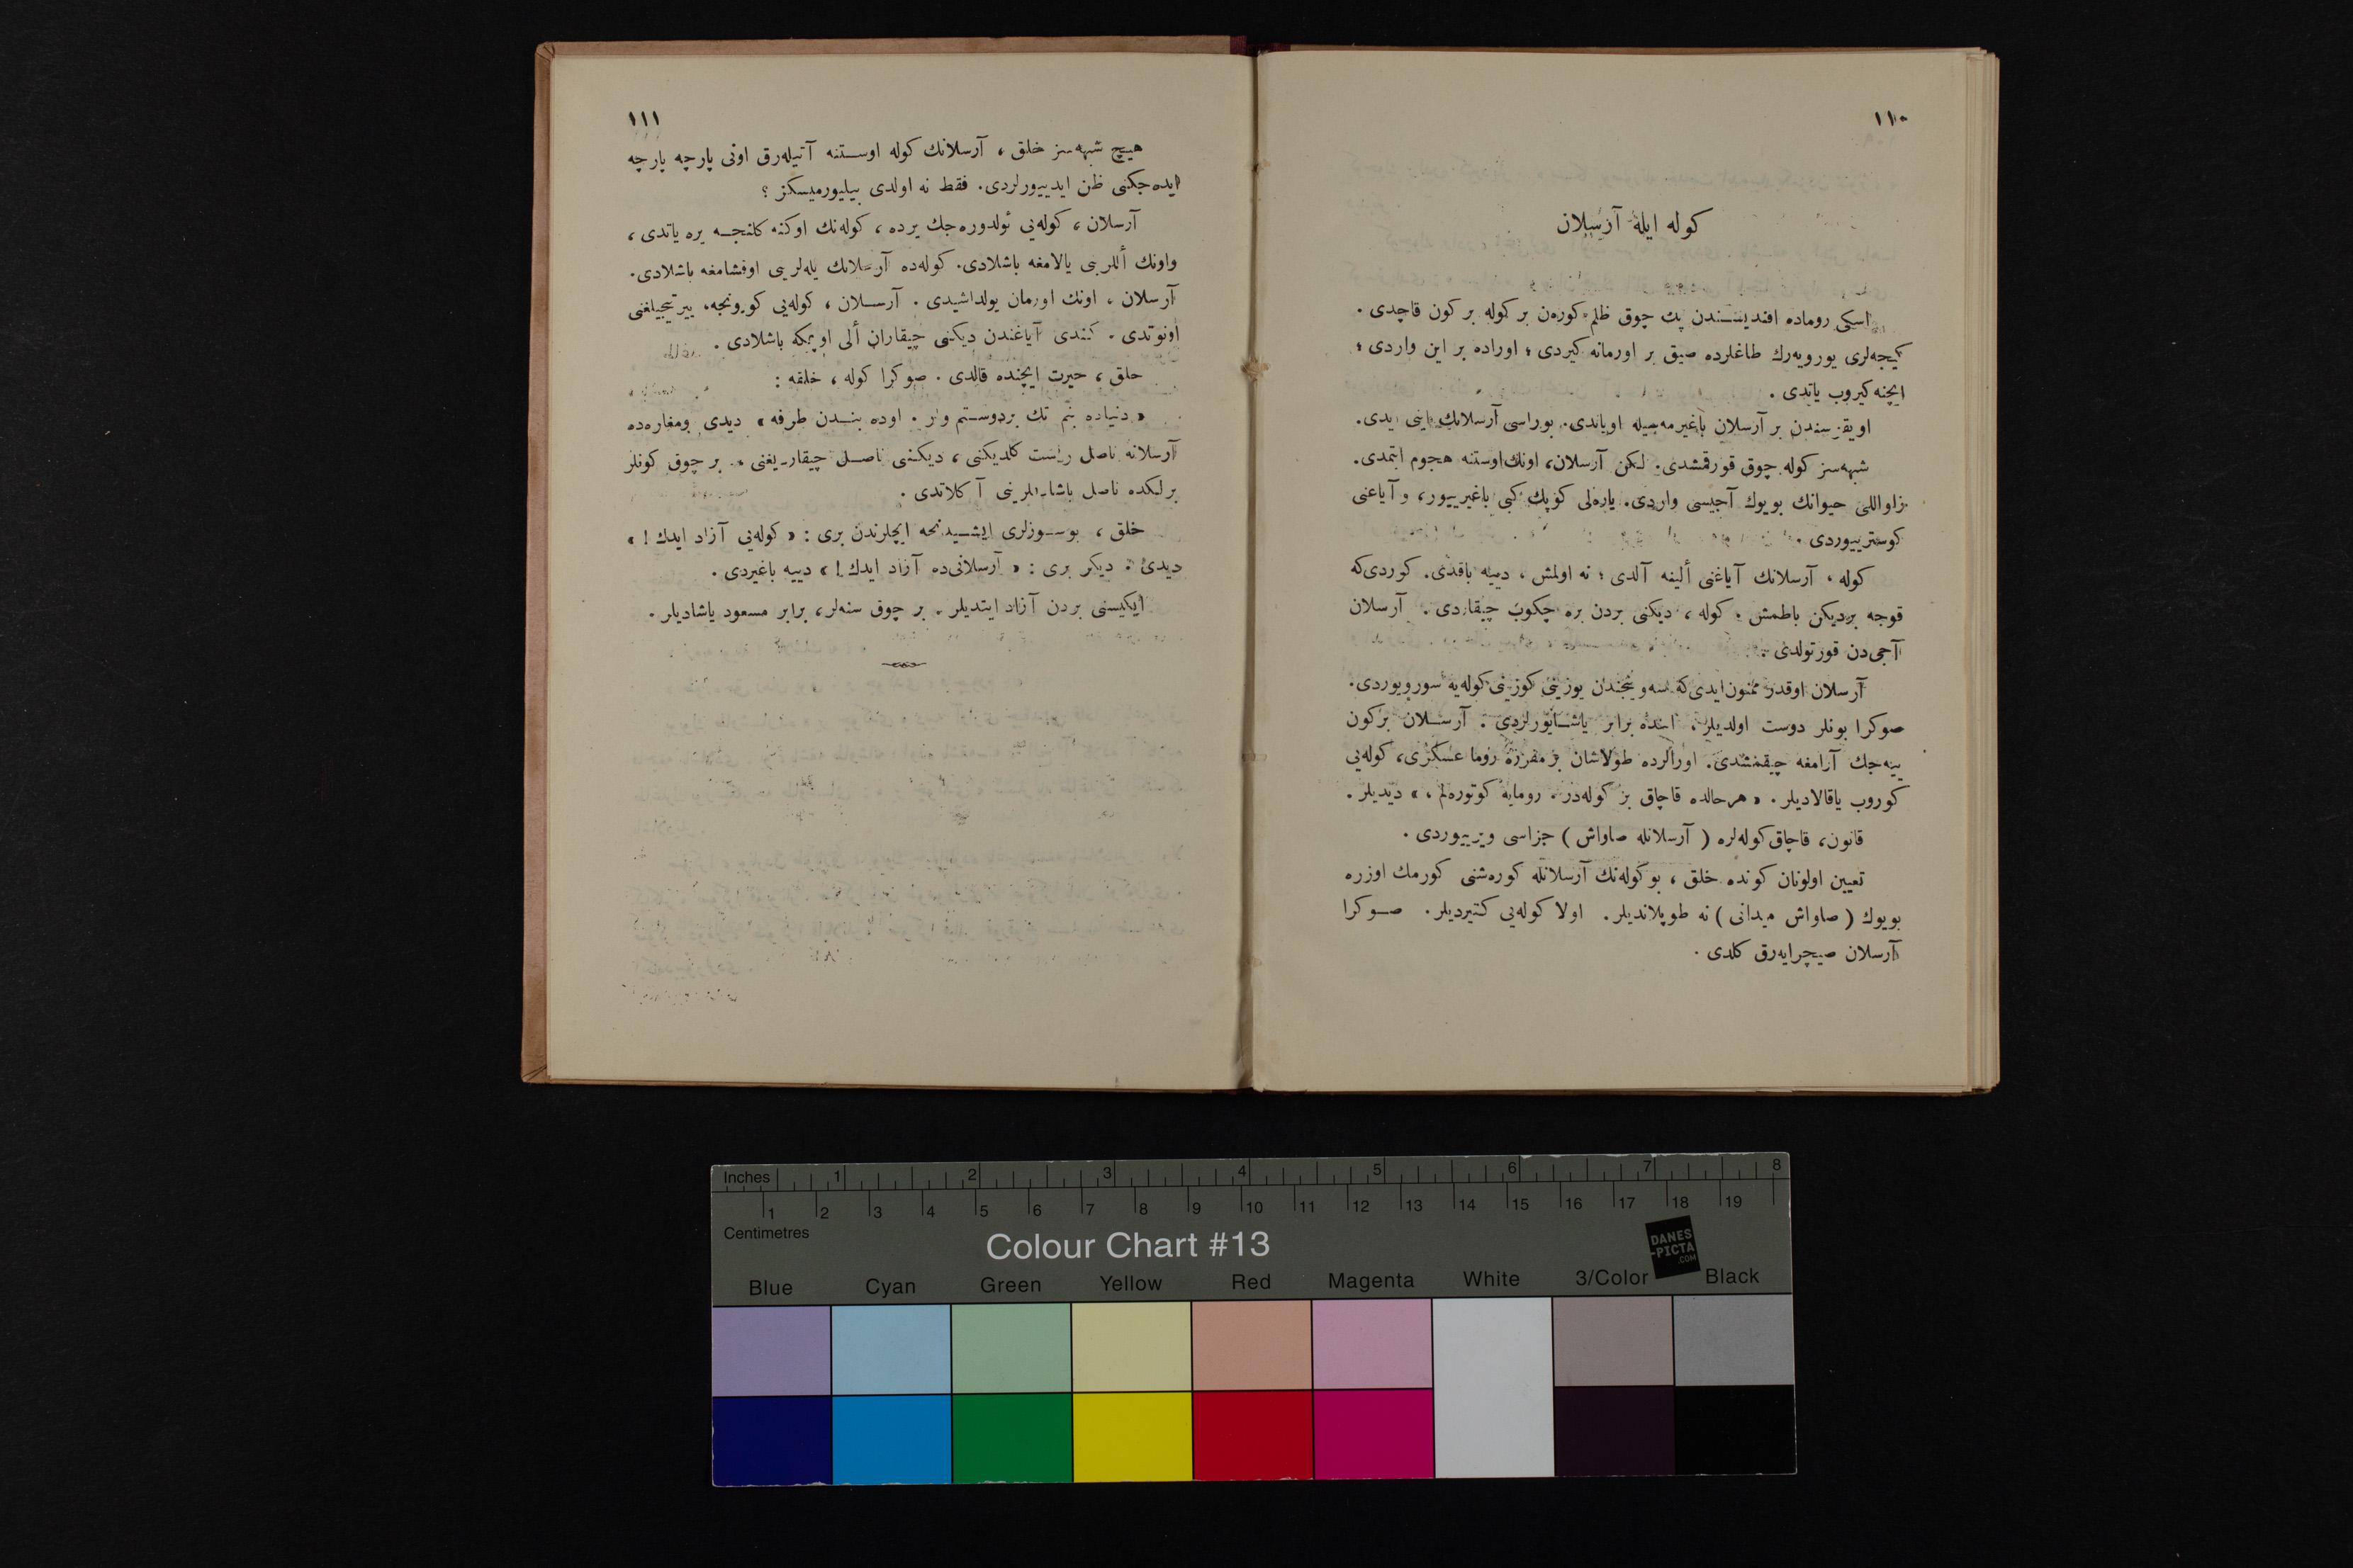 ١١٠
كوله ايله آرسلان
اسكى روماده افنديسندن پك چوق ظلم كوره‌ن بر كوله بر كون قاچدى .
كيجه‌لرى يورويه‌رك طاغلرده صيق بر اورمانه كيردى ؛ اوراده بر اين واردى ؛
ايچنه كيروب ياتدى .
اويقوسندن بر آرسلان باغيرمه‌سيله اوياندى. بوراسى آرسلانك اينى ايدى.
شبهه‌سز كوله چوق قورقمشدى. لكن آرسلان، اونك اوستنه هجوم ايتمدى.
زاواللى حيوانك بويوك آجيسى واردى. ياره‌لى كوپك كبى باغيرييور، و آياغنى
كوسترييوردى .
كوله ، آرسلانك آياغنى ألينه آلدى ؛ نه اولمش ، دييه باقدى. كوردى‌كه
قوجه بر ديكن باطمش . كوله ، ديكنى بردن بره چكوب چيقاردى . آرسلان
آجى‌دن قورتولدى .
آرسلان اوقدر ممنون ايدى كه سه‌وينجندن يوزينى كوزينى كوله‌يه سورويوردى.
صوكرا بونلر دوست اولديلر ، اينده برابر ياشايورلردى . آرسلان بر كون
ييه‌جك آرامغه چيقمشدى. اورالرده طولاشان بر مفرزه روما عسكرى، كوله‌يى
كوروب ياقالاديلر . « هر حالده قاچاق بر كوله‌در . رومايه كوتوره‌لم ، » ديديلر .
قانون، قاچاق كوله‌لره ( آرسلانله صاواش ) جزاسى ويرييوردى .
تعيين اولونان كونده خلق ، بو كوله‌نك آرسلانله كوره‌شنى كورمك اوزره
بويوك ( صاواش ميدانى ) نه طوپلانديلر . اولا كوله‌يى كتيرديلر . صوكرا
آرسلان صيچرايه‌رق كلدى .
١١١
هيچ شبهه‌سز خلق ، آرسلانك كوله اوستنه آتيله‌رق اونى پارچه پارچه
ايده‌جكنى ظن ايدييورلردى. فقط نه اولدى بيليورميسكز ؟
آرسلان ، كوله‌يى ئولدوره‌جك يرده ، كوله‌نك اوكنه كلنجه يره ياتدى ،
واونك أللرينى يالامغه باشلادى. كوله‌ده آرسلانك يله‌لرينى اوقشامغه باشلادى.
آرسلان ، اونك اورمان يولداشيدى . آرسلان ، كوله‌يى كورونجه، ييرتيجيلغنى
اونوتدى . كندى آياغندن ديكنى چيقاران ألى اوپمكه باشلادى .
خلق ، حيرت ايچنده قالدى . صوكرا كوله ، خلقه :
« دنياده بنم تك بر دوستم وار . اوده بندن طرفه » ديدى ومغاره‌ده
آرسلانه ناصل راست كلديكنى ، ديكنى ناصل چيقارديغنى ، بر چوق كونلر
برلكده ناصل ياشادقلرينى آكلاتدى .
خلق ، بو سوزلرى ايشيدنجه ايچلرندن برى : « كوله‌يى آزاد ايدك ! »
ديدى . ديكر برى : « آرسلانى‌ده آزاد ايدك ! » دييه باغيردى .
ايكيسنى بردن آزاد ايتديلر . بر چوق سنه‌لر ، برابر مسعود ياشاديلر .
Inches 1 2 3 4 5 6 7 8
1 2 3 4 5 6 7 8 9 10 11 12 13 14 15 16 17 18 19
Centimetres
Colour Chart #13
DANES
-PICTA
.COM
Blue Cyan Green Yellow Red Magenta White 3/Color Black